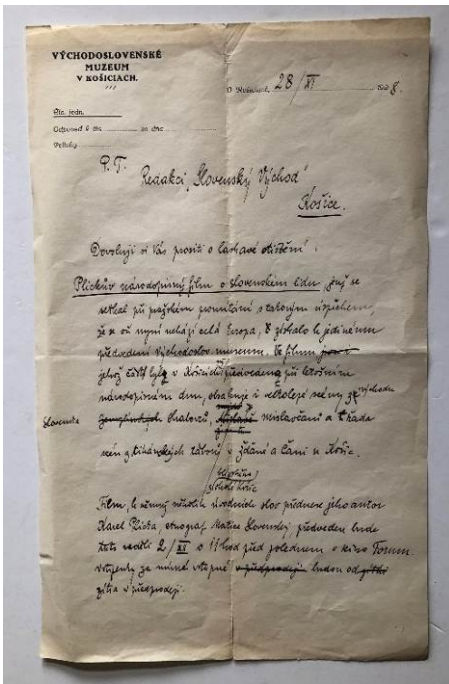 VÝCHODOSLOVENSKÉ
MUZEUM
V KOŠICIACH.
V Košiciach, 28/XI 1928.
Čís. jedn.
Odpoveď k čís. za dňa
Prílohy
P.T.
Redakci „Slovenský Východ“
Košice.
Dovoluji si Vás prositi o laskavé otištění:
Plickův národopisný film o slovenském lidu, jenž se
setkal při pražském promítání s takovým úspěchem,
že se oň nyní uchází celá Evropa, získalo k jedinému
předvedení Východoslov. museum. Ve filmu
jehož části byly v Košicích předvedeny při letošním
národopisném dnu, obsahuje i velkolepé scény z východu
Slovenska
a řada
scén z cikánských táborů v a Čani u Košic.
blízkého
okolí Košic
Film, k němuž několik úvodních slov přednese jeho autor
Karel Plicka, etnograf Matice Slovenskej, předveden bude
tuto neděli 2/XII o 11 hod před polednem v kino Forum.
Vstupenky za mírné vstupné v předprodeji budou od zítřka
zítra v předprodeji.